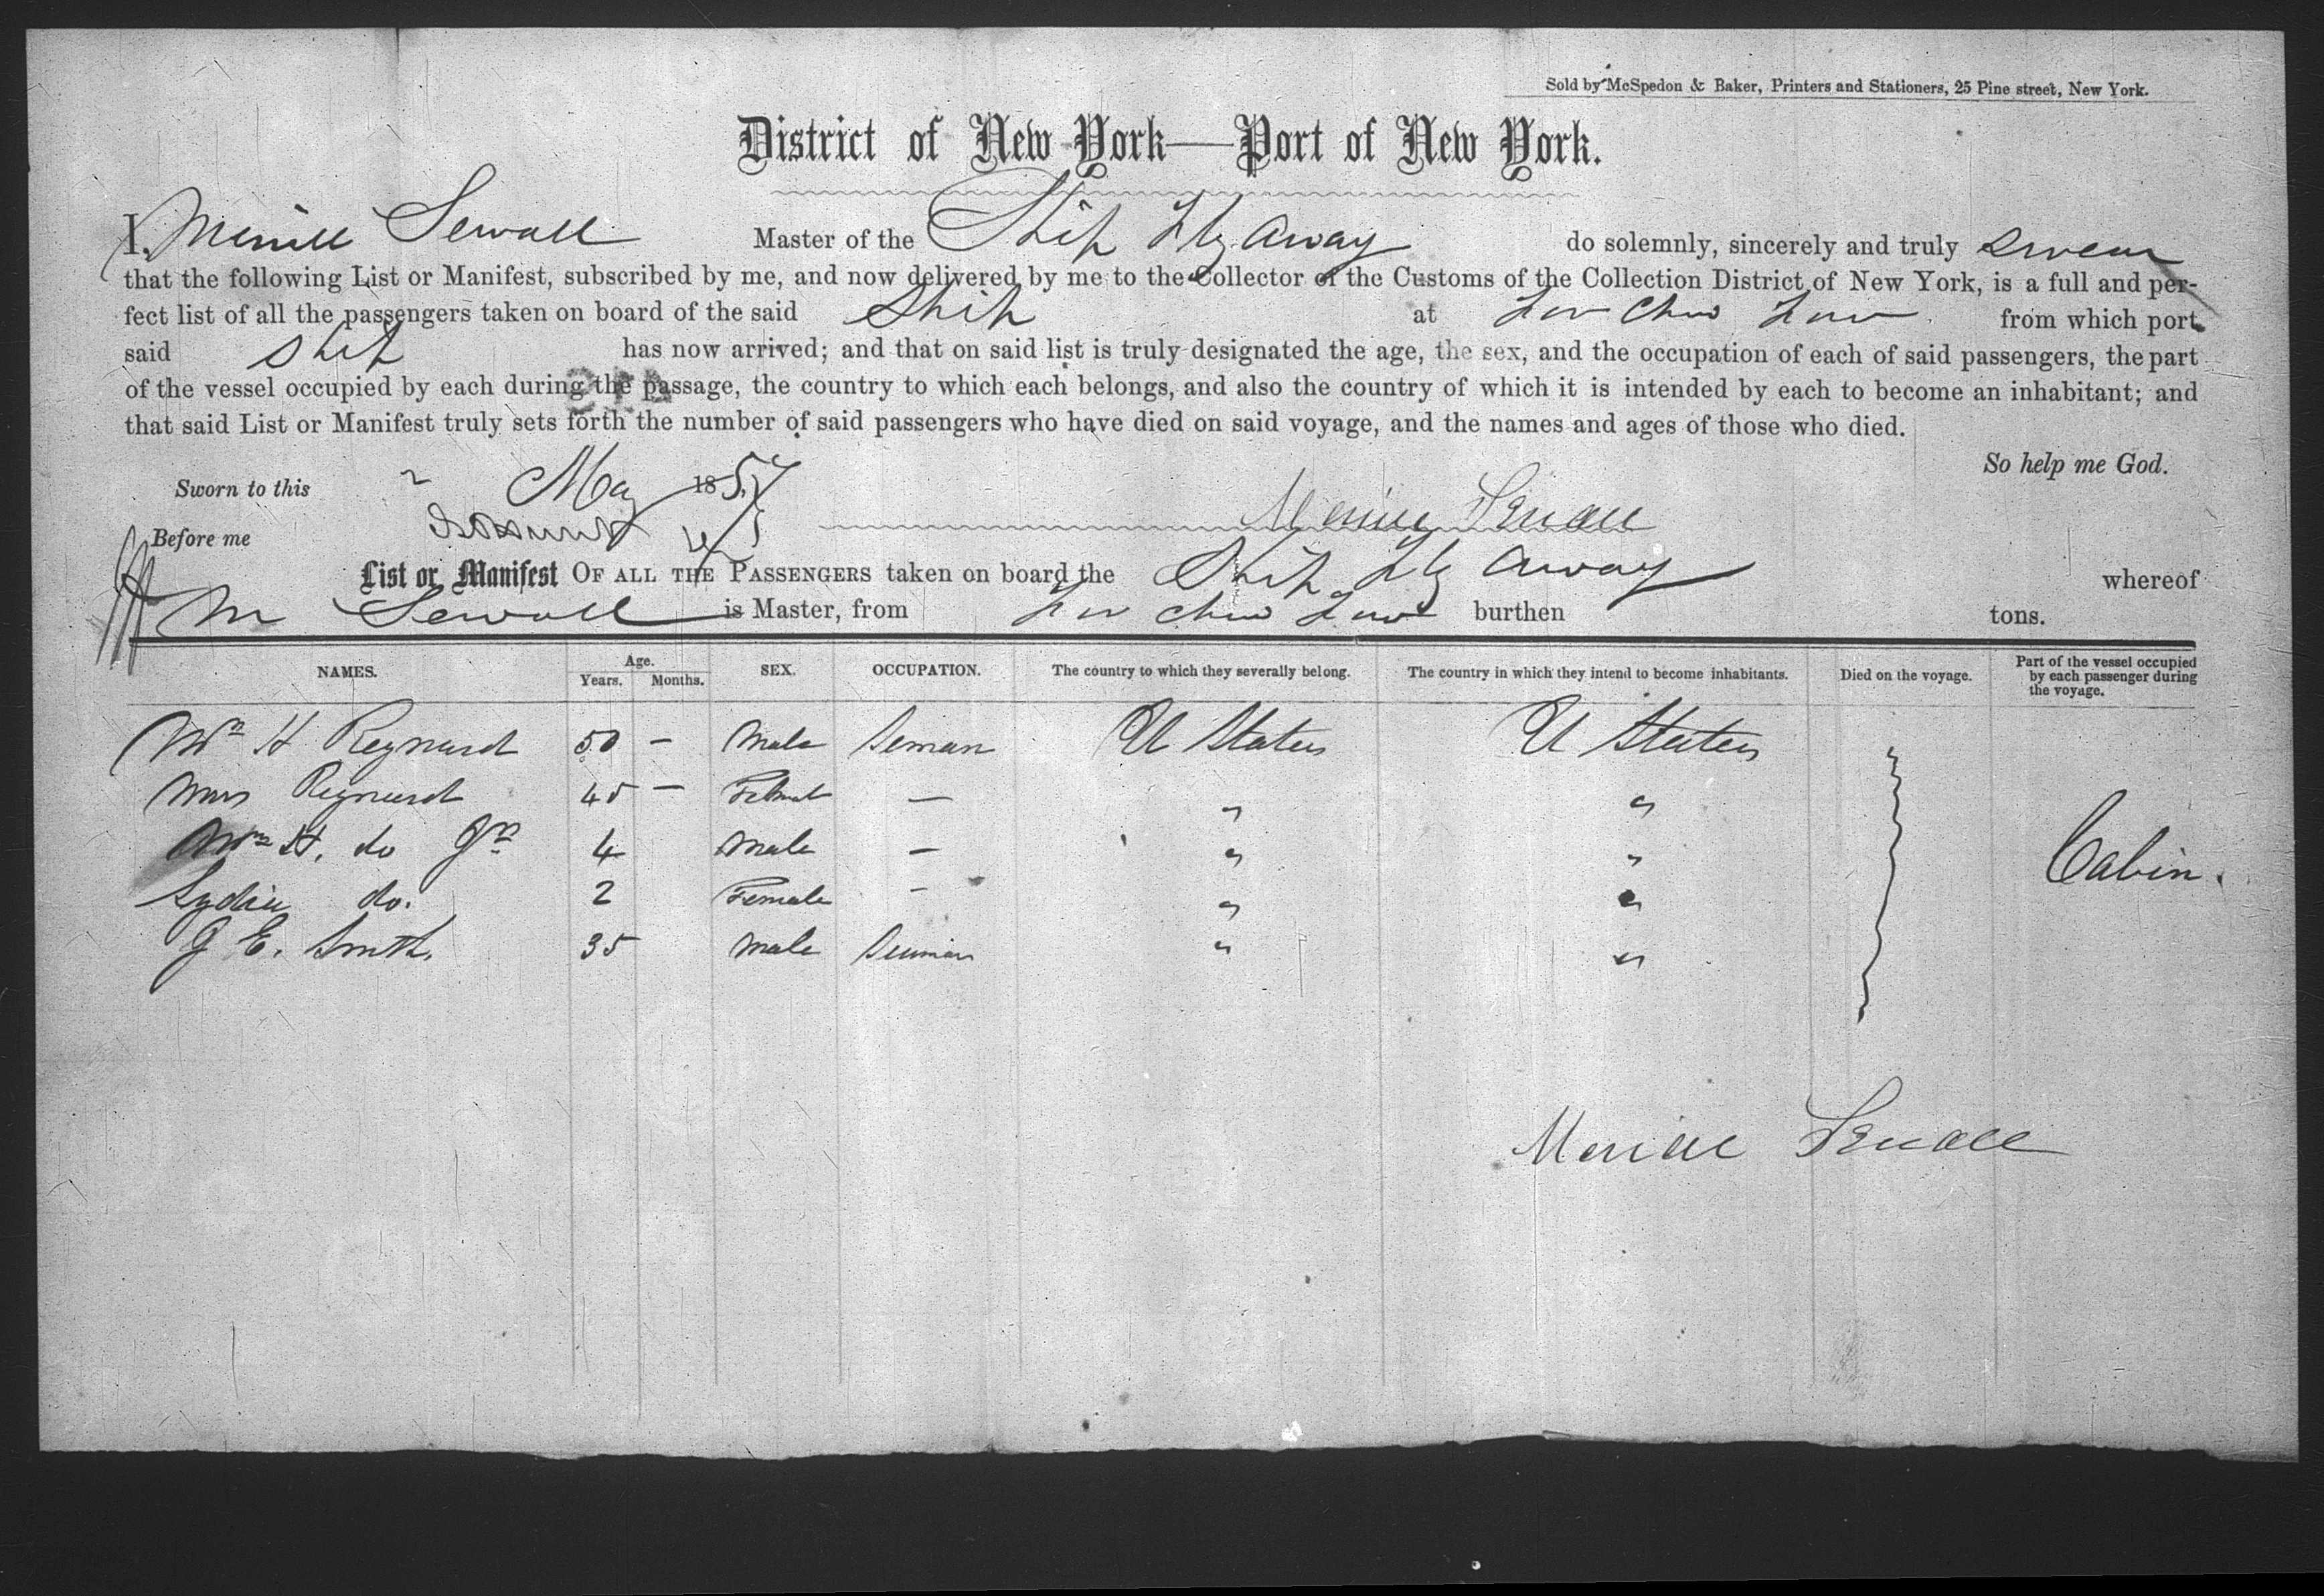 Sold by McSpedon & Baker, Printers and Stationers, 25 Pine street, New York.
District of New York—Port of New York.
I, Merrill Sewall Master of the Ship Fly Away do solemnly, sincerely and truly swear
that the following List or Manifest, subscribed by me, and now delivered by me to the Collector of the Customs of the Collection District of New York, is a full and per-
fect list of all the passengers taken on board of the said Ship at Foo Choo Foo from which port
said Ship has now arrived; and that on said list is truly designated the age, the sex, and the occupation of each of said passengers, the part
of the vessel occupied by each during the passage, the country to which each belongs, and also the country of which it is intended by each to become an inhabitant; and
that said List or Manifest truly sets forth the number of said passengers who have died on said voyage, and the names and ages of those who died.
So help me God.
Sworn to this 2 May 1857
Before me Merrill Sewall
List or Manifest OF ALL THE PASSENGERS taken on board the Ship Fly Away whereof
M Sewall is Master, from Foo Choo Foo burthen tons.
NAMES. Age. Years. Months. SEX. OCCUPATION. The country to which they severally belong. The country in which they intend to become inhabitants. Died on the voyage. Part of the vessel occupied by each passenger during the voyage.
Wm H Reynard 50 – Male Seman U States U States
Mrs Reynard 45 – Female — " "
Wm H. do Jr 4 Male — " "
Lydia do. 2 Female – " "
J E. Smith. 35 Male Seman " "
Cabin.
Merrill Sewall